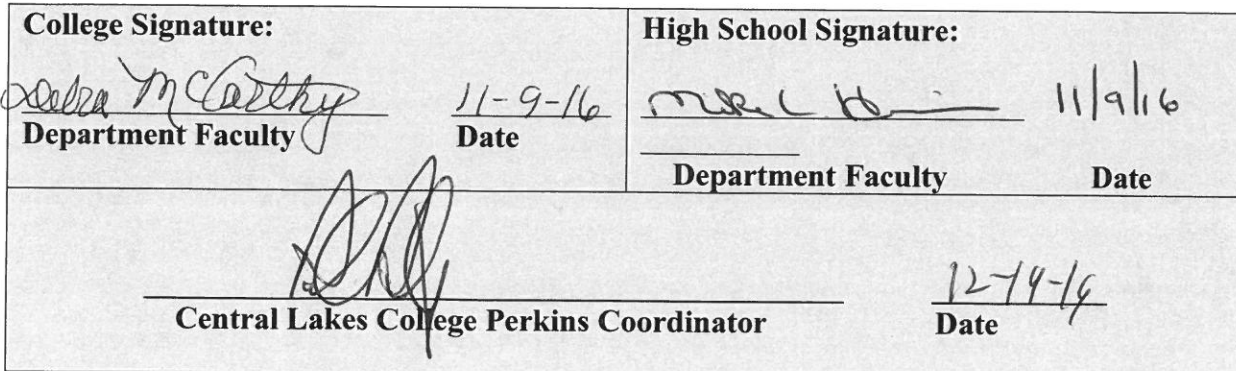 College Signature:
McCarthy 11-9-16
Department Faculty Date
High School Signature:
11/9/16
Department Faculty Date
Central Lakes College Perkins Coordinator Date